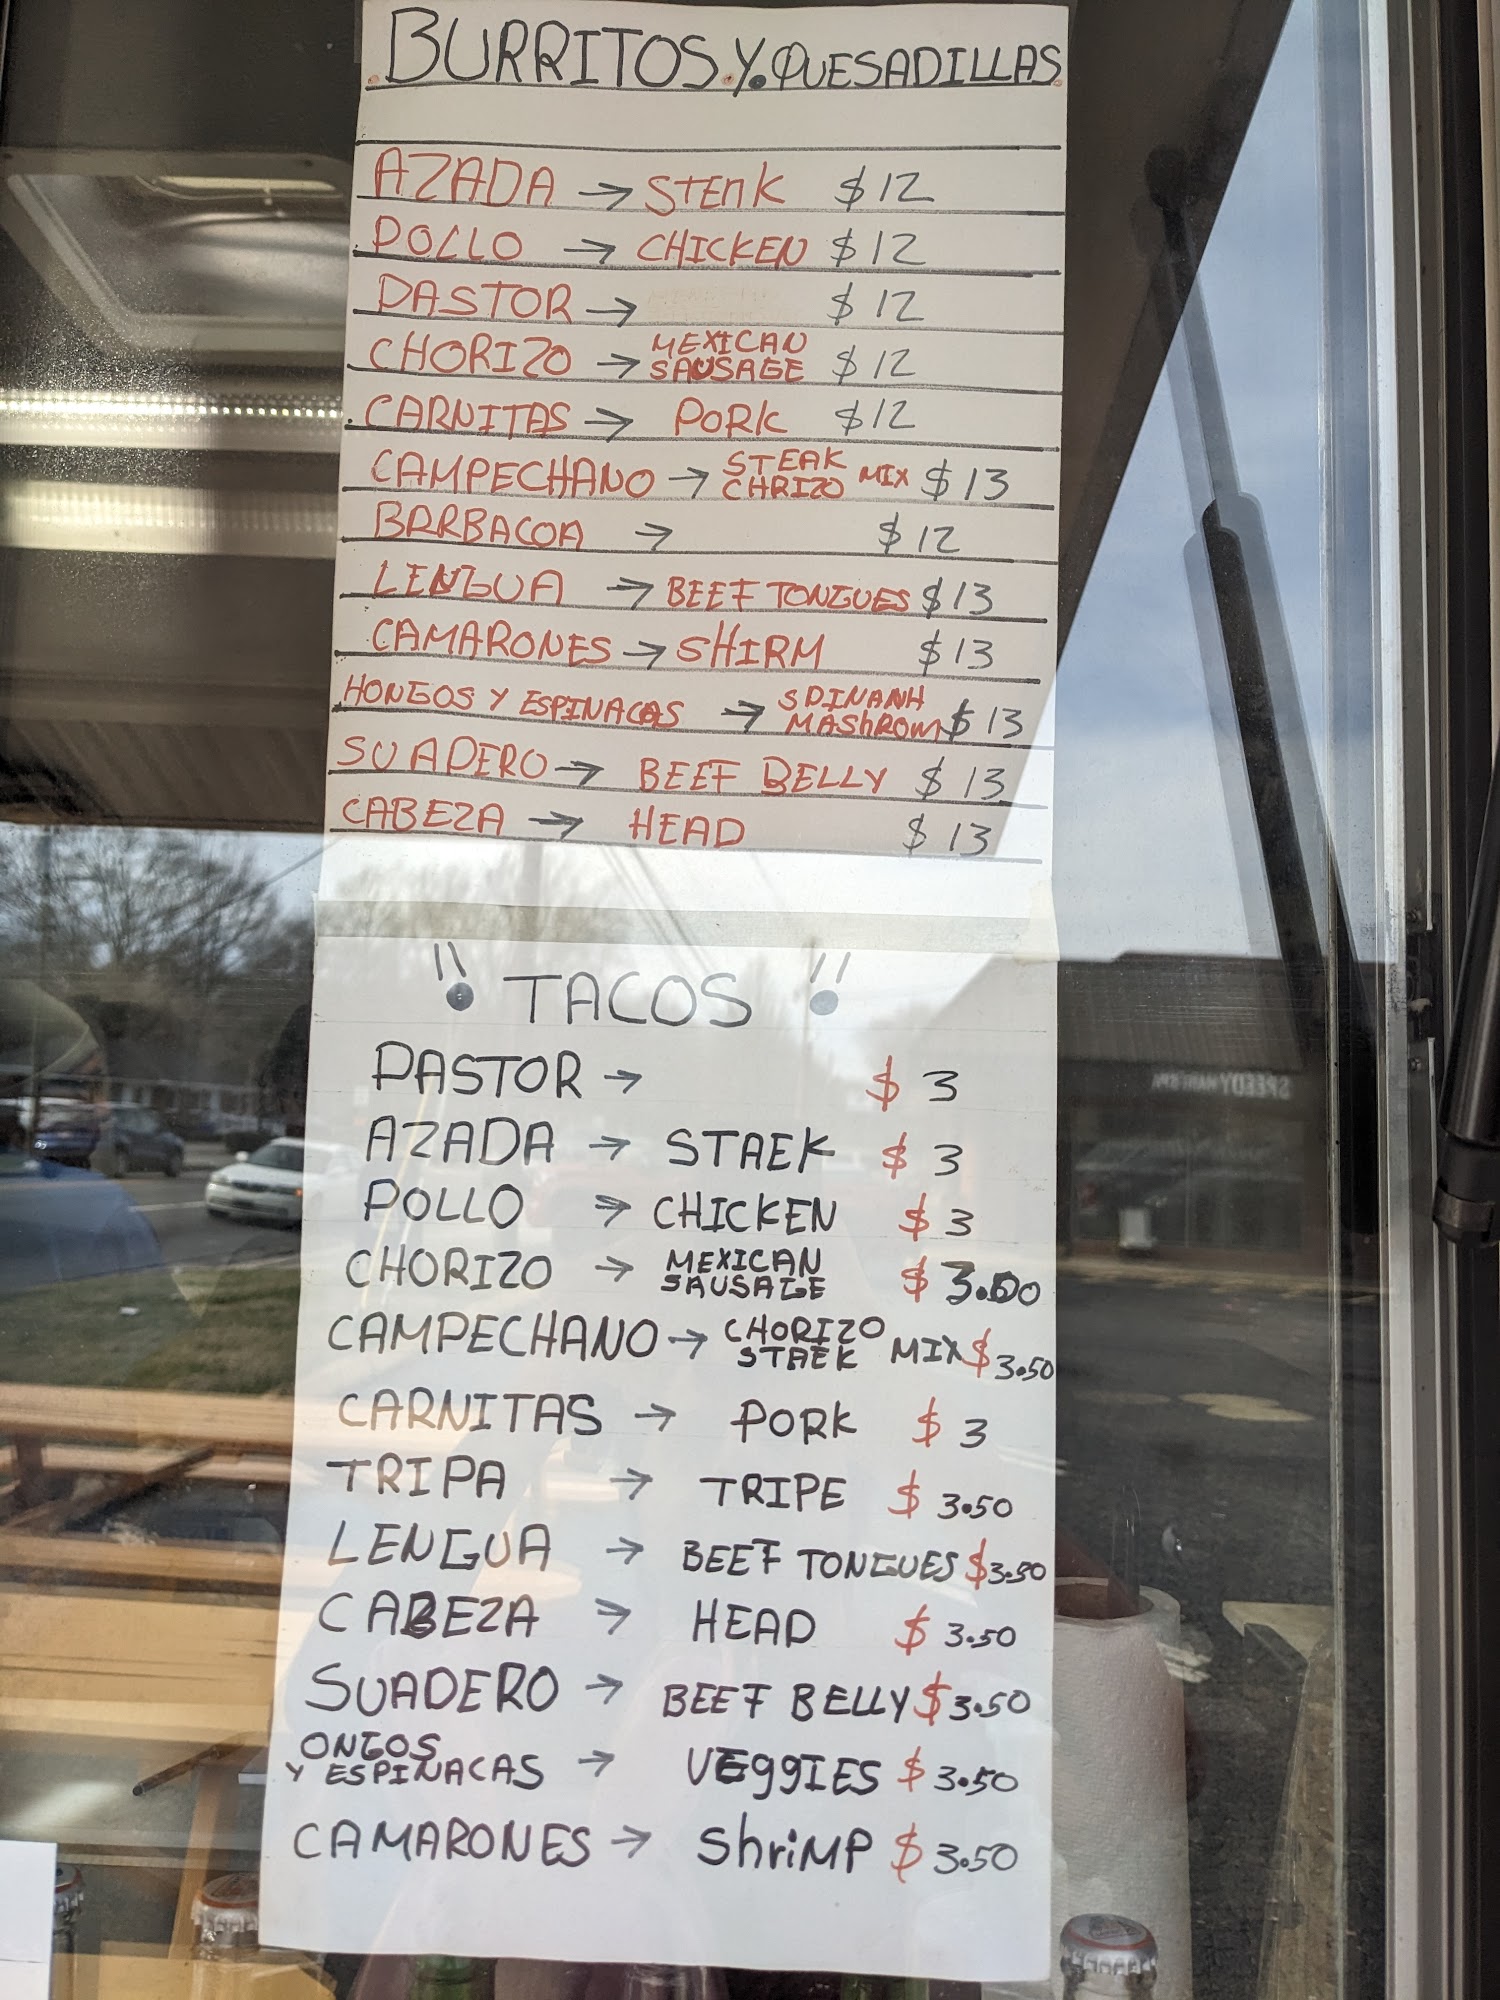 .BURRITOS.Y.QUESADILLAS.
AZADA → STEAK $12
POLLO → CHICKEN $12
PASTOR → $12
CHORIZO → MEXICAN SAUSAGE $12
CARNITAS → PORK $12
CAMPECHANO → STEAK CHRIZO MIX $13
BARBACOA → $12
LENGUA → BEEF TONGUES $13
CAMARONES → SHIRM $13
HONGOS Y ESPINACAS → SPINANH MASHROM $13
SUADERO → BEEF BELLY $13
CABEZA → HEAD $13
!! TACOS !!
PASTOR → $3
AZADA → STAEK $3
POLLO → CHICKEN $3
CHORIZO → MEXICAN SAUSAGE $3.00
CAMPECHANO → CHORIZO STAEK MIX $3.50
CARNITAS → PORK $3
TRIPA → TRIPE $3.50
LENGUA → BEEF TONGUES $3.50
CABEZA → HEAD $3.50
SUADERO → BEEF BELLY $3.50
ONGOS Y ESPINACAS → VEggIES $3.50
CAMARONES → ShriMP $3.50
SPEEDY